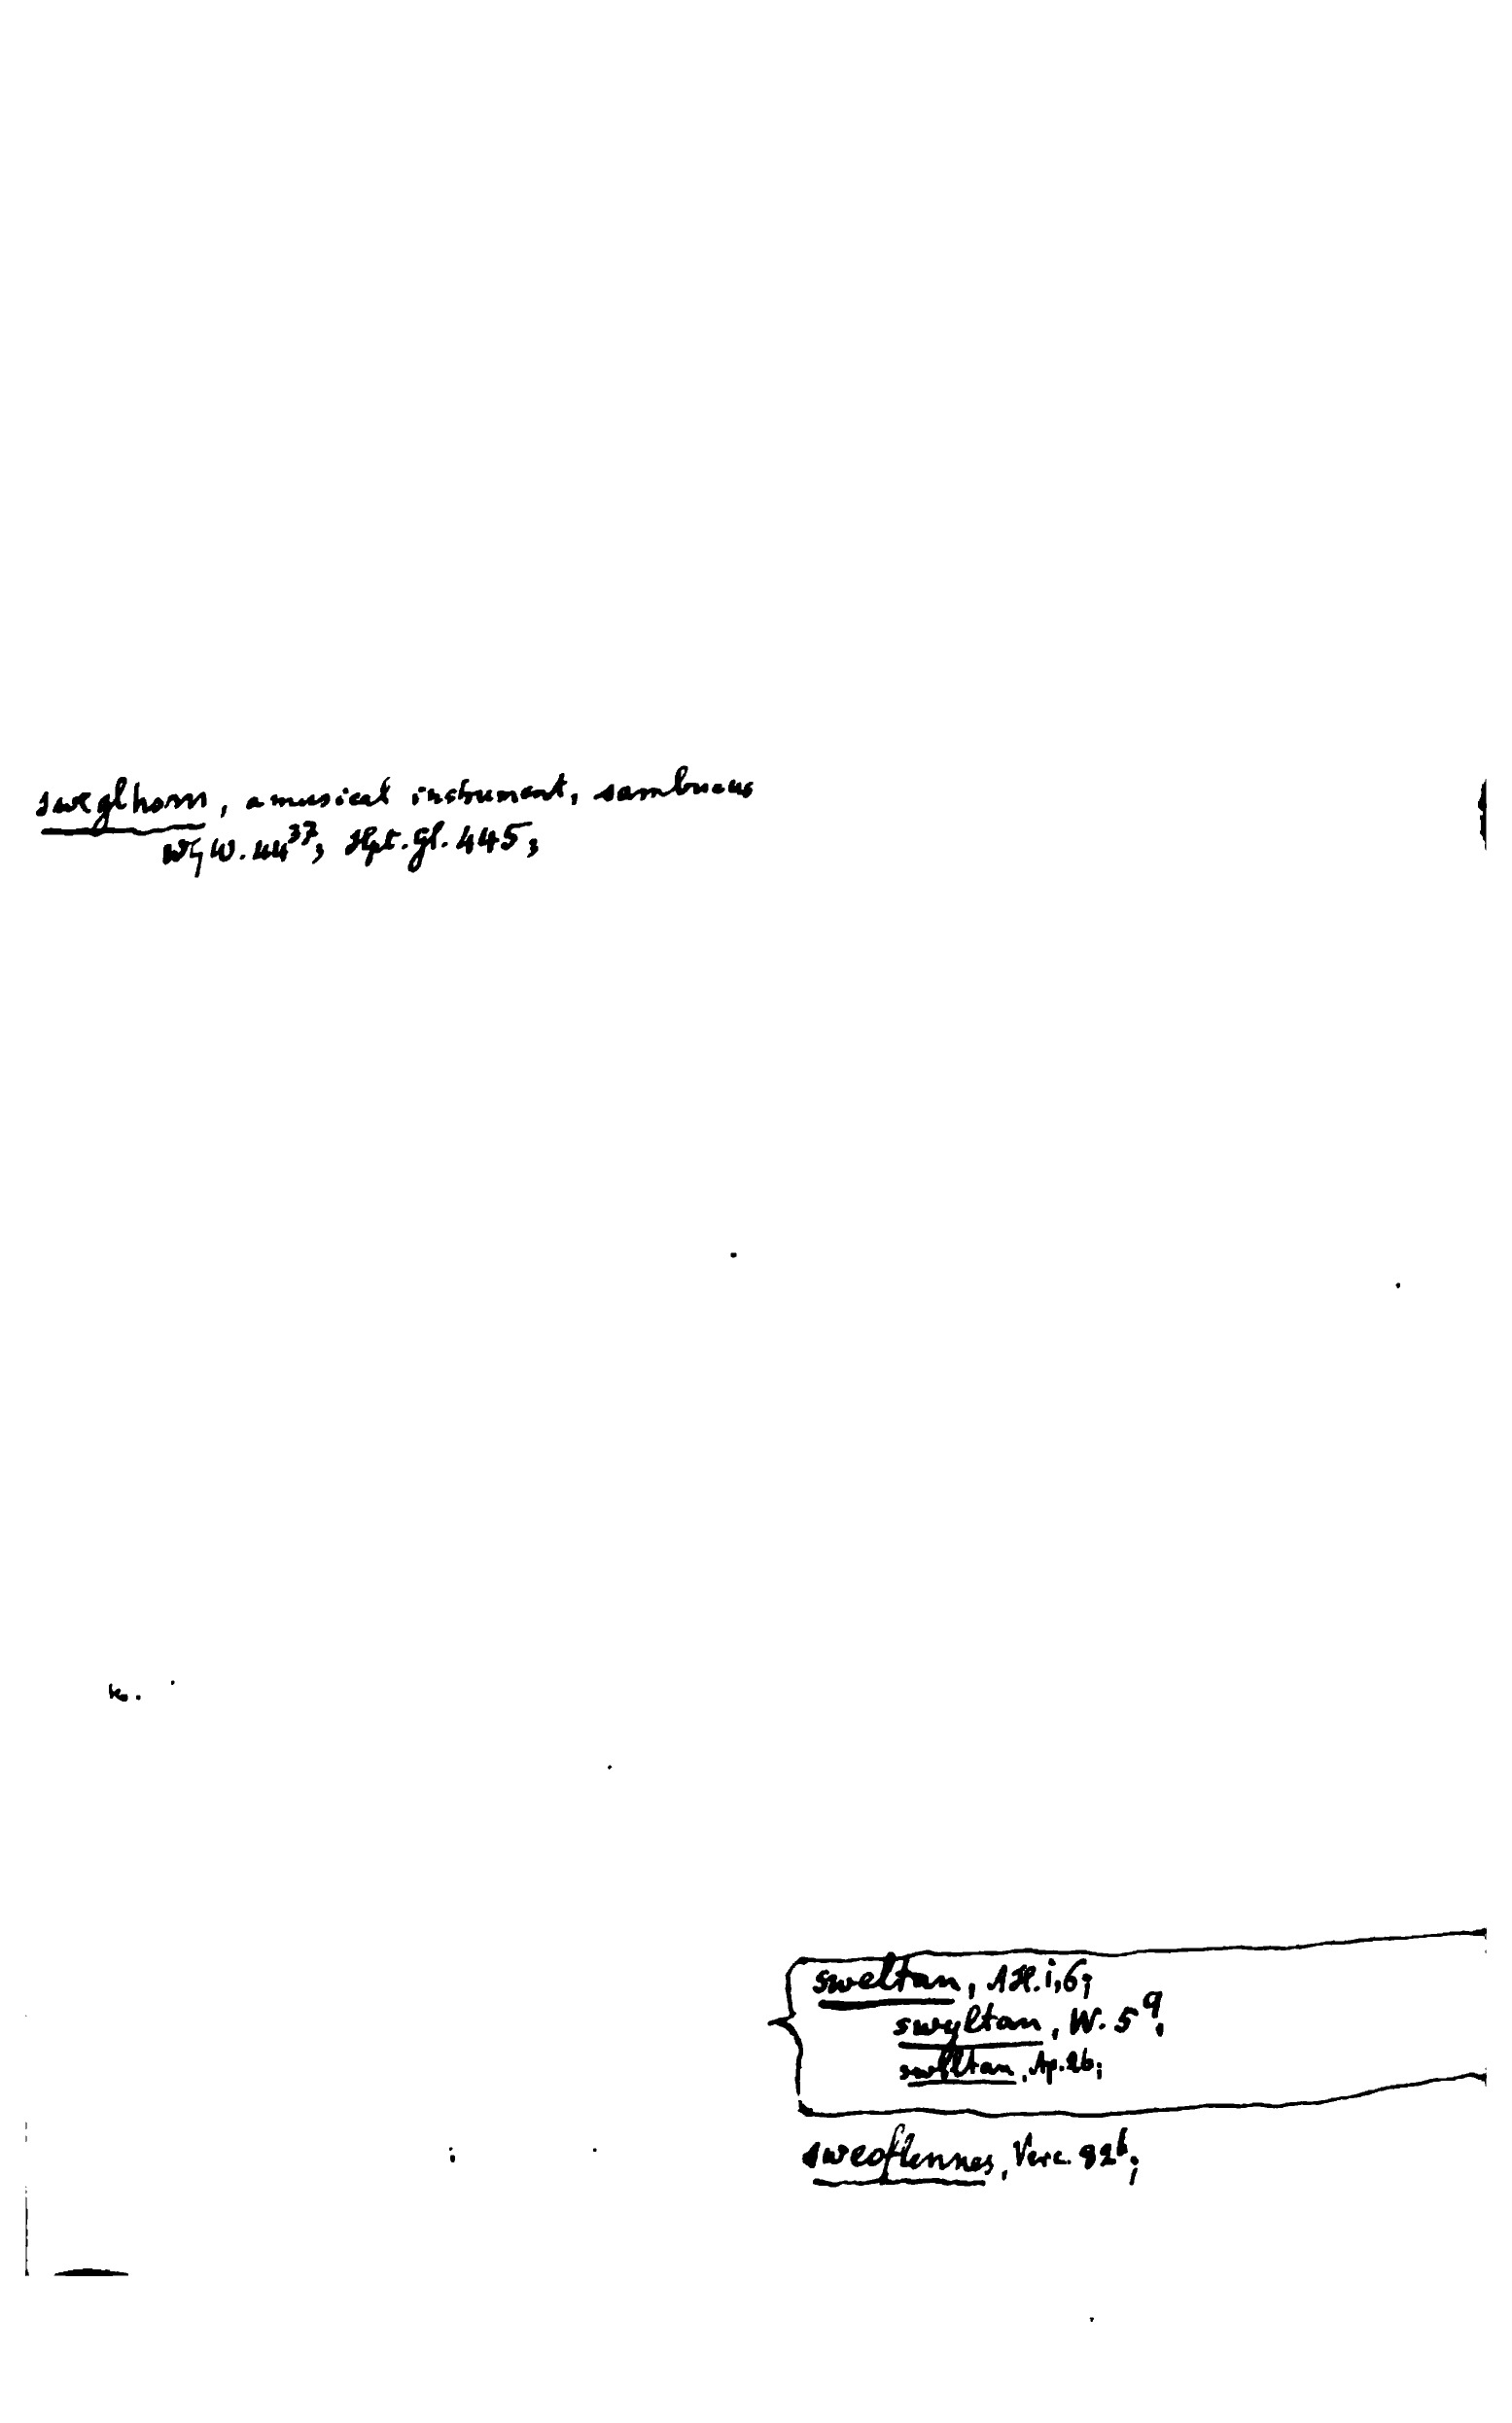 sweglhorn, a musical instrument, sambucus
W⁊W. 44³⁷; Hpt. Gl. 445;
sweltan, AH. i, 6;
swyltan, W. 5⁹;
Ap. 26;
sweoflennes, Verc. 92ᵇ;